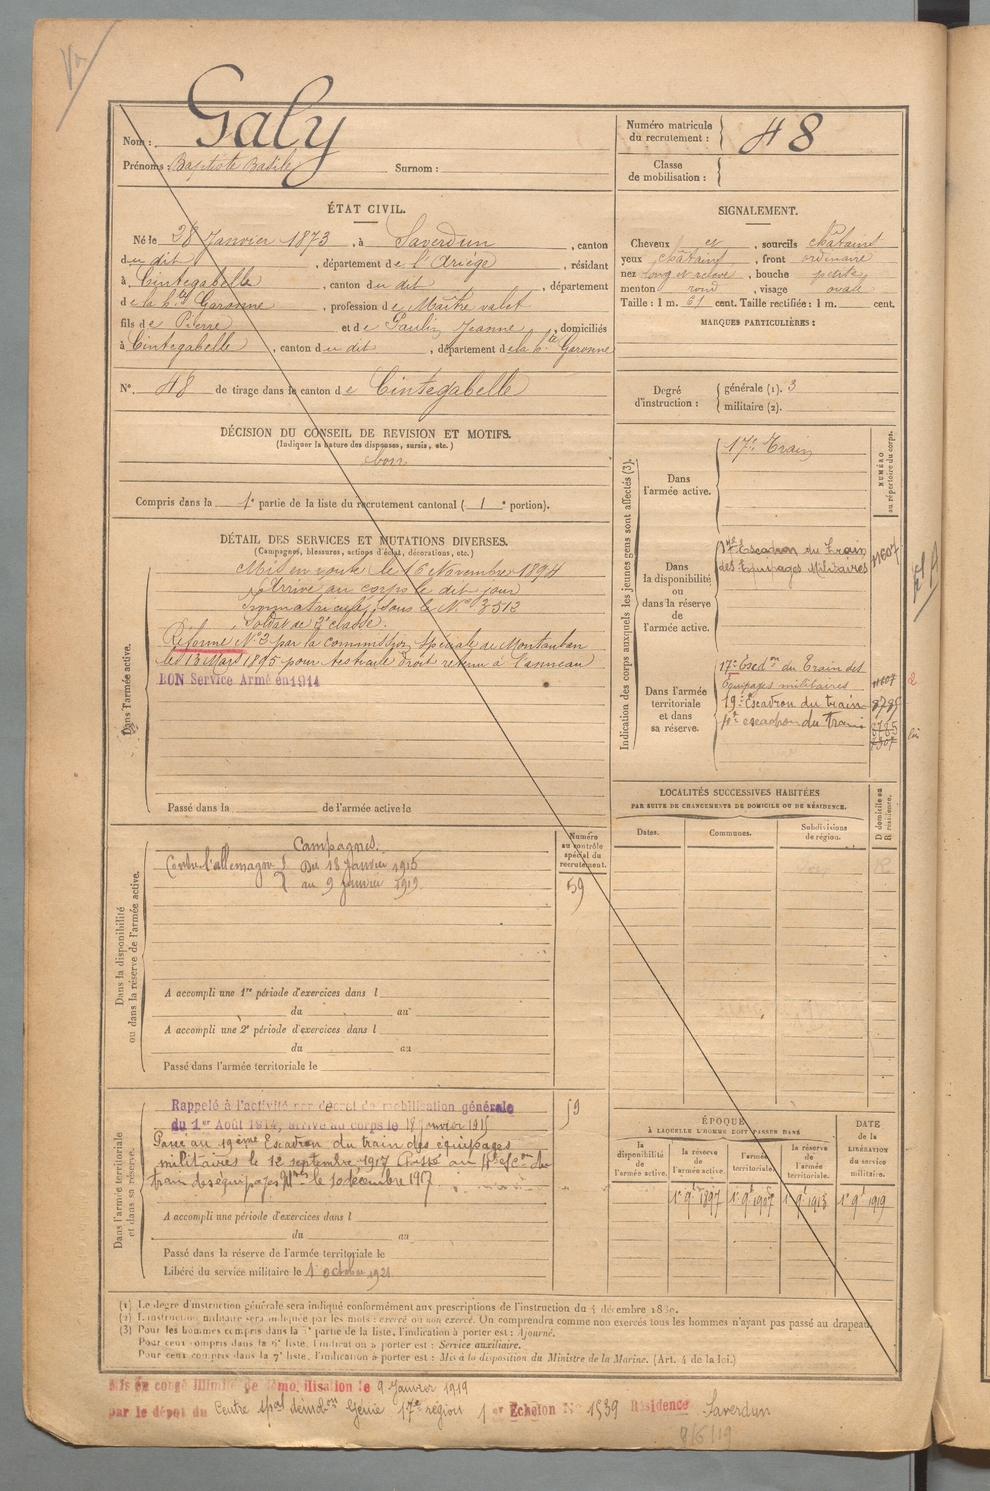 Galy
Nom :
Prénoms : Baptiste Basile Surnom :
Numéro matricule du recrutement : 48
Classe de mobilisation :
ÉTAT CIVIL.
Né le 28 Janvier 1873, à Saverdun, canton
du dit, département de l'Ariège, résidant
à Cintegabelle, canton du dit, département
de la hte Garonne, profession de Maître valet
fils de Pierre et de Paulin Jeanne, domiciliés
à Cintegabelle, canton du dit, département de la hte Garonne
No. 48 de tirage dans le canton de Cintegabelle
DÉCISION DU CONSEIL DE REVISION ET MOTIFS.
(Indiquer la nature des dispenses, sursis, etc.)
bon
Compris dans la 1e partie de la liste du recrutement cantonal (1e portion).
SIGNALEMENT.
Cheveux et, sourcils châtains
yeux châtains, front ordinaire
nez long et relevé, bouche petite
menton rond, visage ovale
Taille : 1 m. 61 cent. Taille rectifiée : 1 m. cent.
MARQUES PARTICULIÈRES :
Degré d'instruction : générale (1). 3
militaire (2).
DÉTAIL DES SERVICES ET MUTATIONS DIVERSES.
(Campagnes, blessures, actions d'éclat, décorations, etc.)
Dans l'armée active.
Mis en route le 16 Novembre 1894
Arrivé au corps le dit jour
Immatriculé sous le No 3513
Soldat de 2e classe.
Réformé No 2 par la commission spéciale de Montauban
le 13 Mars 1895 pour testicule droit retenu à l'anneau
BON Service Armé en 1914
Passé dans la de l'armée active le
Indication des corps auxquels les jeunes gens sont affectés (3).
NUMÉRO au répertoire du corps.
Dans l'armée active.
17e Train
Dans la disponibilité ou dans la réserve de l'armée active.
17e Escadron du Train
des Equipages Militaires
Dans l'armée territoriale et dans sa réserve.
17e Escdon du Train des
Equipages militaires
19e Escadron du train
escadron du train
LOCALITÉS SUCCESSIVES HABITÉES
PAR SUITE DE CHANGEMENTS DE DOMICILE OU DE RÉSIDENCE.
Dates. Communes. Subdivisions de région.
D domicile ou R résidence.
Dans la disponibilité ou dans la réserve de l'armée active.
Numéro au contrôle spécial du recrutement.
59
Campagnes.
Contre l'allemagne Du 18 Janvier 1915
au 9 Janvier 1919
A accompli une 1re période d'exercices dans l
du au
A accompli une 2e période d'exercices dans l
du au
Passé dans l'armée territoriale le
Dans l'armée territoriale et dans sa réserve.
Rappelé à l'activité par décret de mobilisation générale
du 1er Août 1914, arrivé au corps le 18 janvier 1915
Passé au 19ème Escadron du train des équipages
militaires le 12 septembre 1917 Passé au
train des équipages Mres le 10 décembre 1917
59
A accompli une période d'exercices dans l
du au
Passé dans la réserve de l'armée territoriale le
Libéré du service militaire le 1 octobre 1921
ÉPOQUE
À LAQUELLE L'HOMME DOIT PASSER DANS
la disponibilité de l'armée active. la réserve de l'armée active. l'armée territoriale. la réserve de l'armée territoriale.
DATE de la LIBÉRATION du service militaire.
1e 9e 1897 1e 9e 1907 1e 9e 1913 1e 9e 1919
(1) Le degré d'instruction générale sera indiqué conformément aux prescriptions de l'instruction du 4 décembre
(2) L'instruction militaire sera indiquée par les mots : exercé ou non exercé. On comprendra comme non exercés tous les hommes n'ayant pas passé au drapeau.
(3) Pour les hommes compris dans la partie de la liste, l'indication à porter est : Ajourné.
Pour ceux compris dans la liste, l'indication à porter est : Service auxiliaire.
Pour ceux compris dans la 7e liste, l'indication à porter est : Mis à la disposition du Ministre de la Marine. (Art. 4 de la loi.)
Mis en congé illimité de démobilisation le 9 Janvier 1919
par le dépôt du Centre spal démobon Génie 17e région 1er Echelon No 1539 Résidence Saverdun